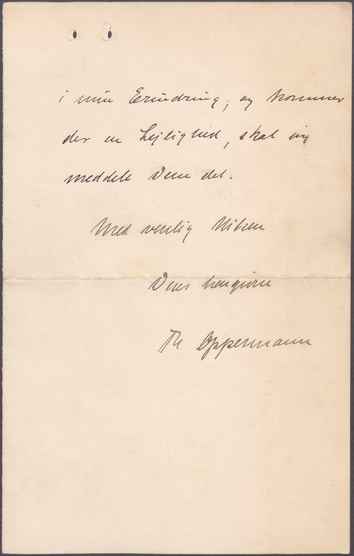 i min Erindring, og kommer
der en Lejlighed, skal jeg
meddele Dem det.
Med venlig Hilsen
Deres hengivne
Th Oppermann